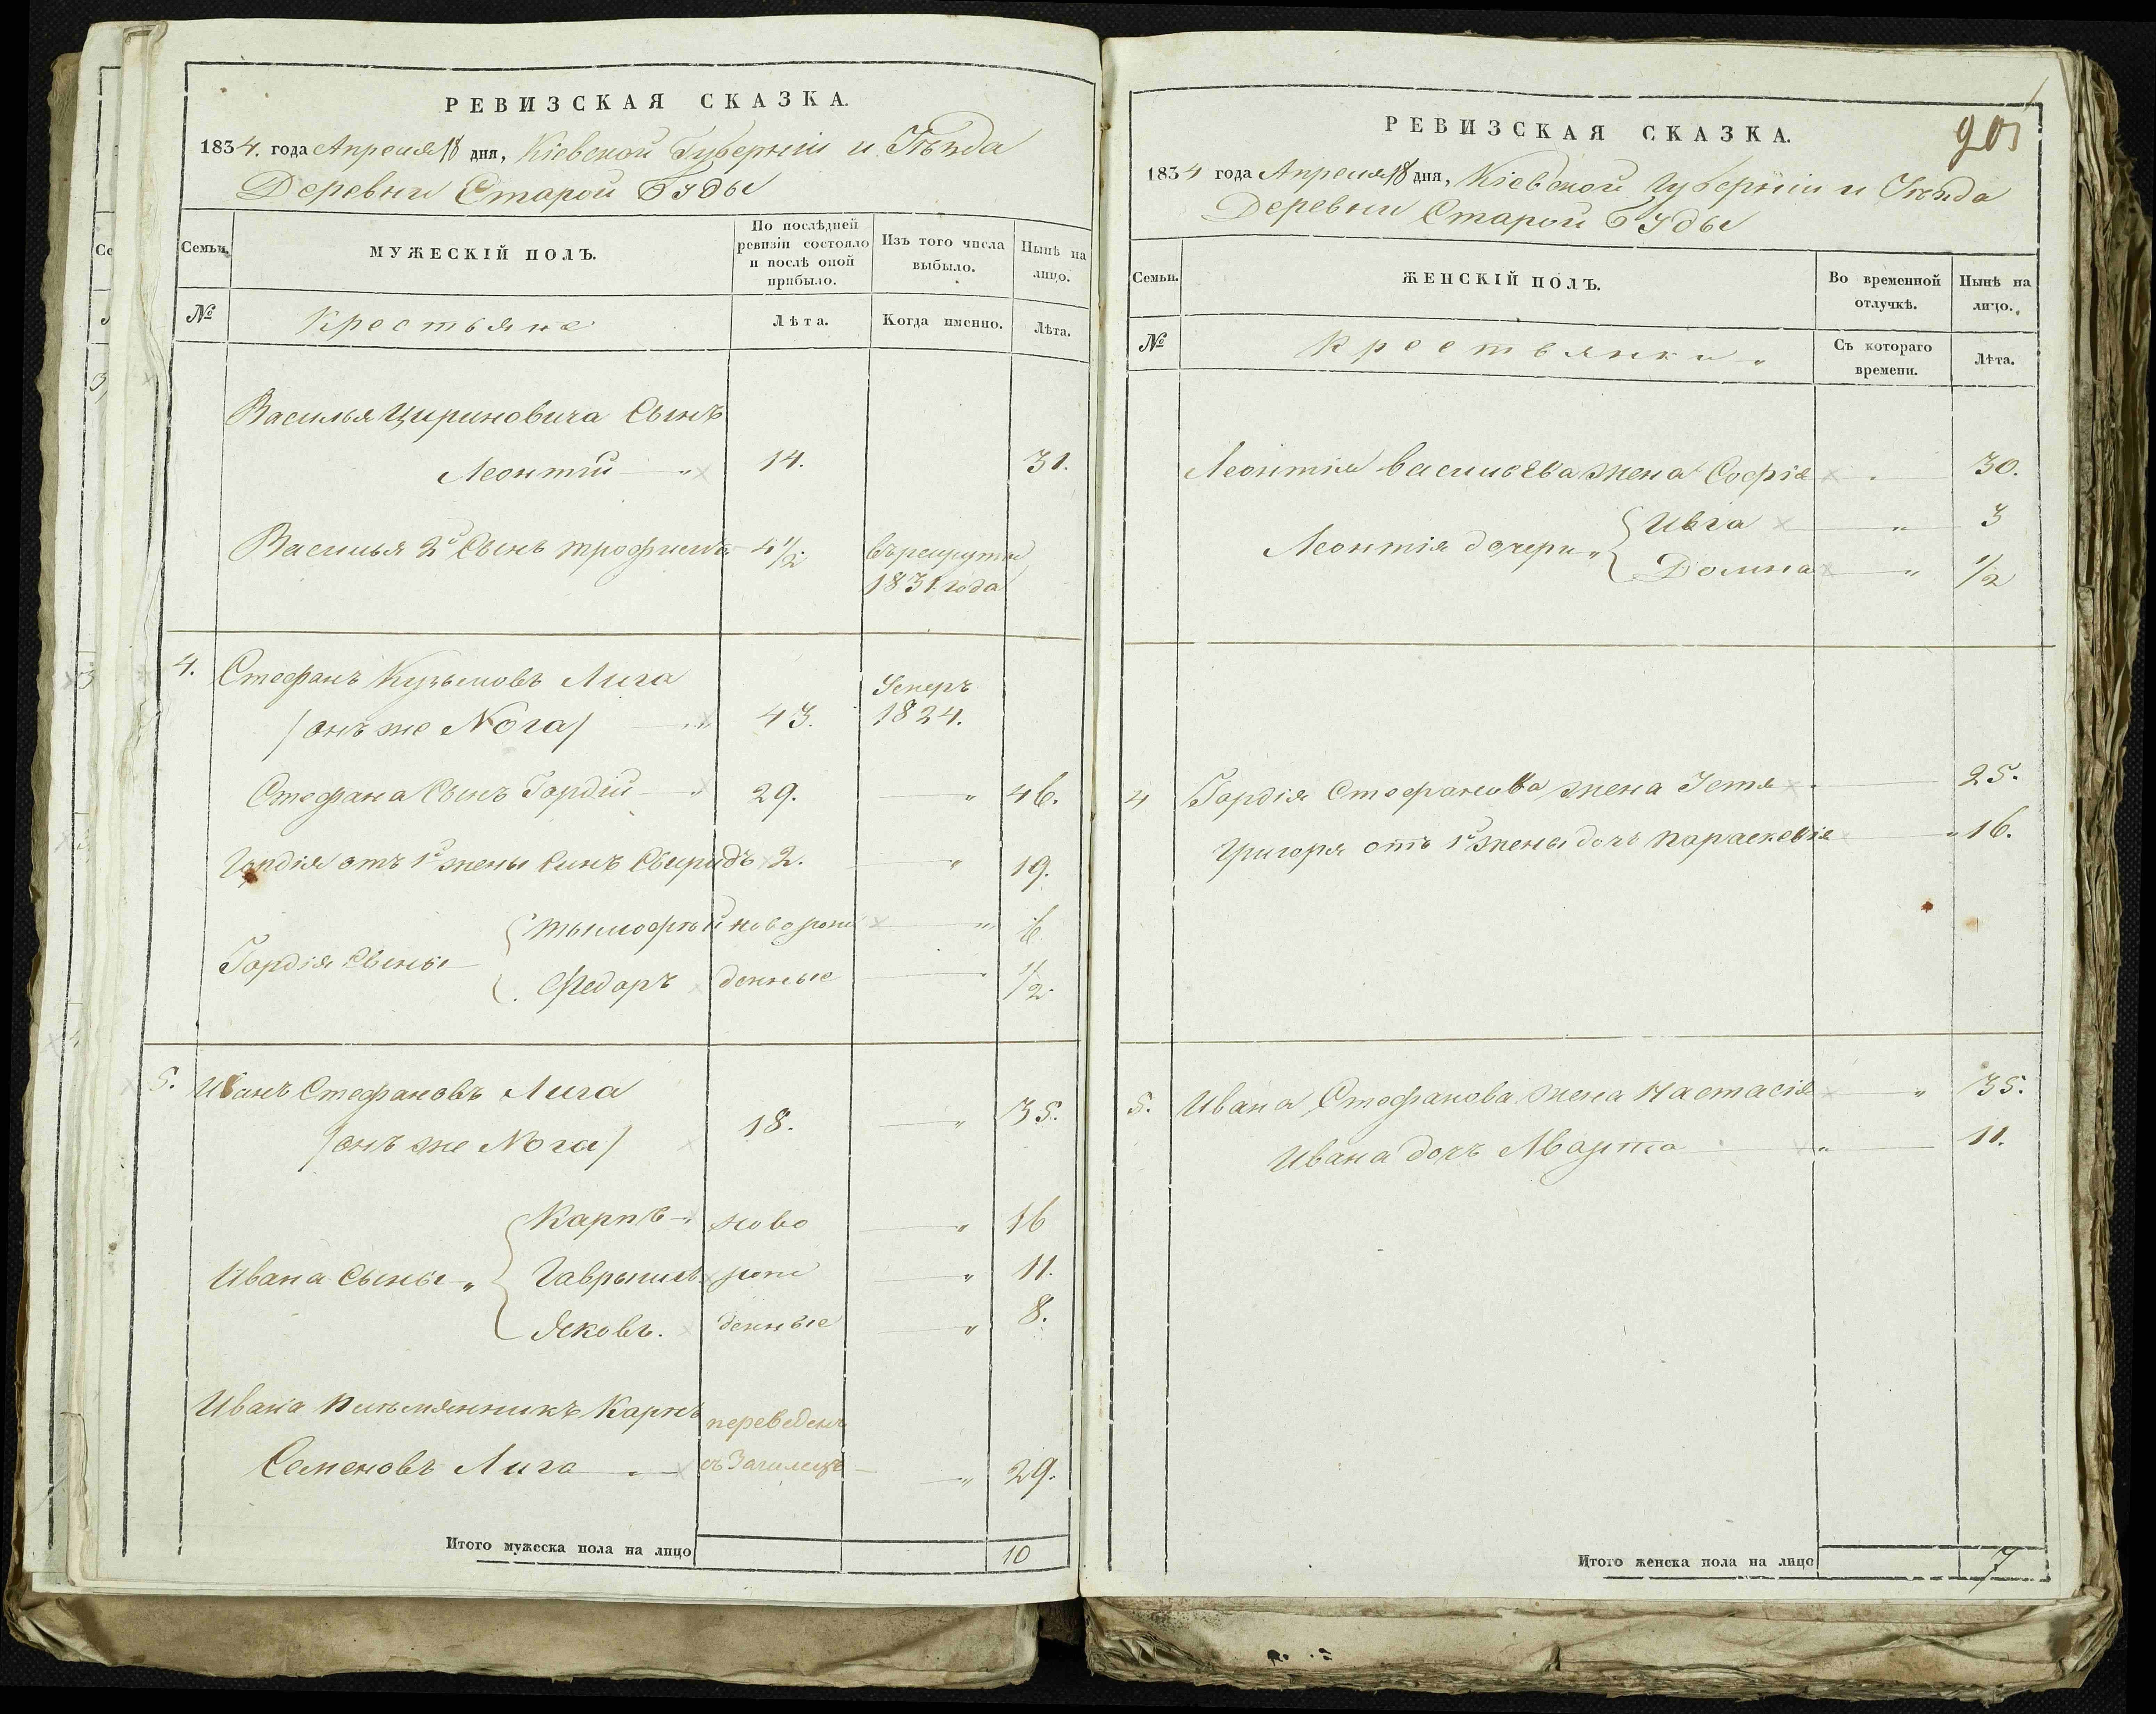 РЕВИЗСКАЯ СКАЗКА.
1834. года Апреля 18 дня, Кіевской Губерніи и Уѣзда
Деревни Старой Буды
Семьи.
МУЖЕСКІЙ ПОЛЪ.
По послѣдней ревизіи состояло и послѣ оной прибыло.
Изъ того числа выбыло.
Нынѣ на лицо.
№
Крестьяне
Лѣта.
Когда именно.
Лѣта.
Василья Цириновича Сынъ
Леонтій 14. 31.
Василья 2й Сынъ трофимъ 4 1/2. въ рекруты
1831 года
4. Стефанъ Кузьмовъ Лига Умеръ
/онъ же Нога/ 43. 1824.
Стефана Сынъ Гордій 29. " 46.
Гордія отъ 1й жены Синъ Свиридъ 2. " 19.
Гордія Сыны
тымофѣй новорож " 6
Федоръ денные " 1/2
5. Иванъ Стефановъ Лига
/онъ же Нога/ 18. " 35.
Карпъ ново " 16
Ивана Сыны " Гаврыилъ рож " 11.
Яковъ. денные " 8.
Ивана племянникъ Карпъ переведенъ
Семеновъ Лига съ " 29.
Итого мужеска пола на лицо 10
РЕВИЗСКАЯ СКАЗКА.
1834 года Апреля 18 дня, Кіевской Губерніи и Уѣзда
Деревни Старой Буды
Семьи.
ЖЕНСКІЙ ПОЛЪ.
Во временной отлучкѣ.
Нынѣ на лицо.
№
Крестьянки
Съ котораго времени.
Лѣта.
Леонтія васильева жена Софія 30.
Ивга " 3
Леонтія дочери "
Домна " 1/2
4 Гордія Стефанова жена Устя 25.
Григоря отъ 1й жены дочь параскевія " 16.
5. Ивана Стефанова жена Настасія " 35.
Ивана дочь Марта " 11.
Итого женска пола на лицо 7